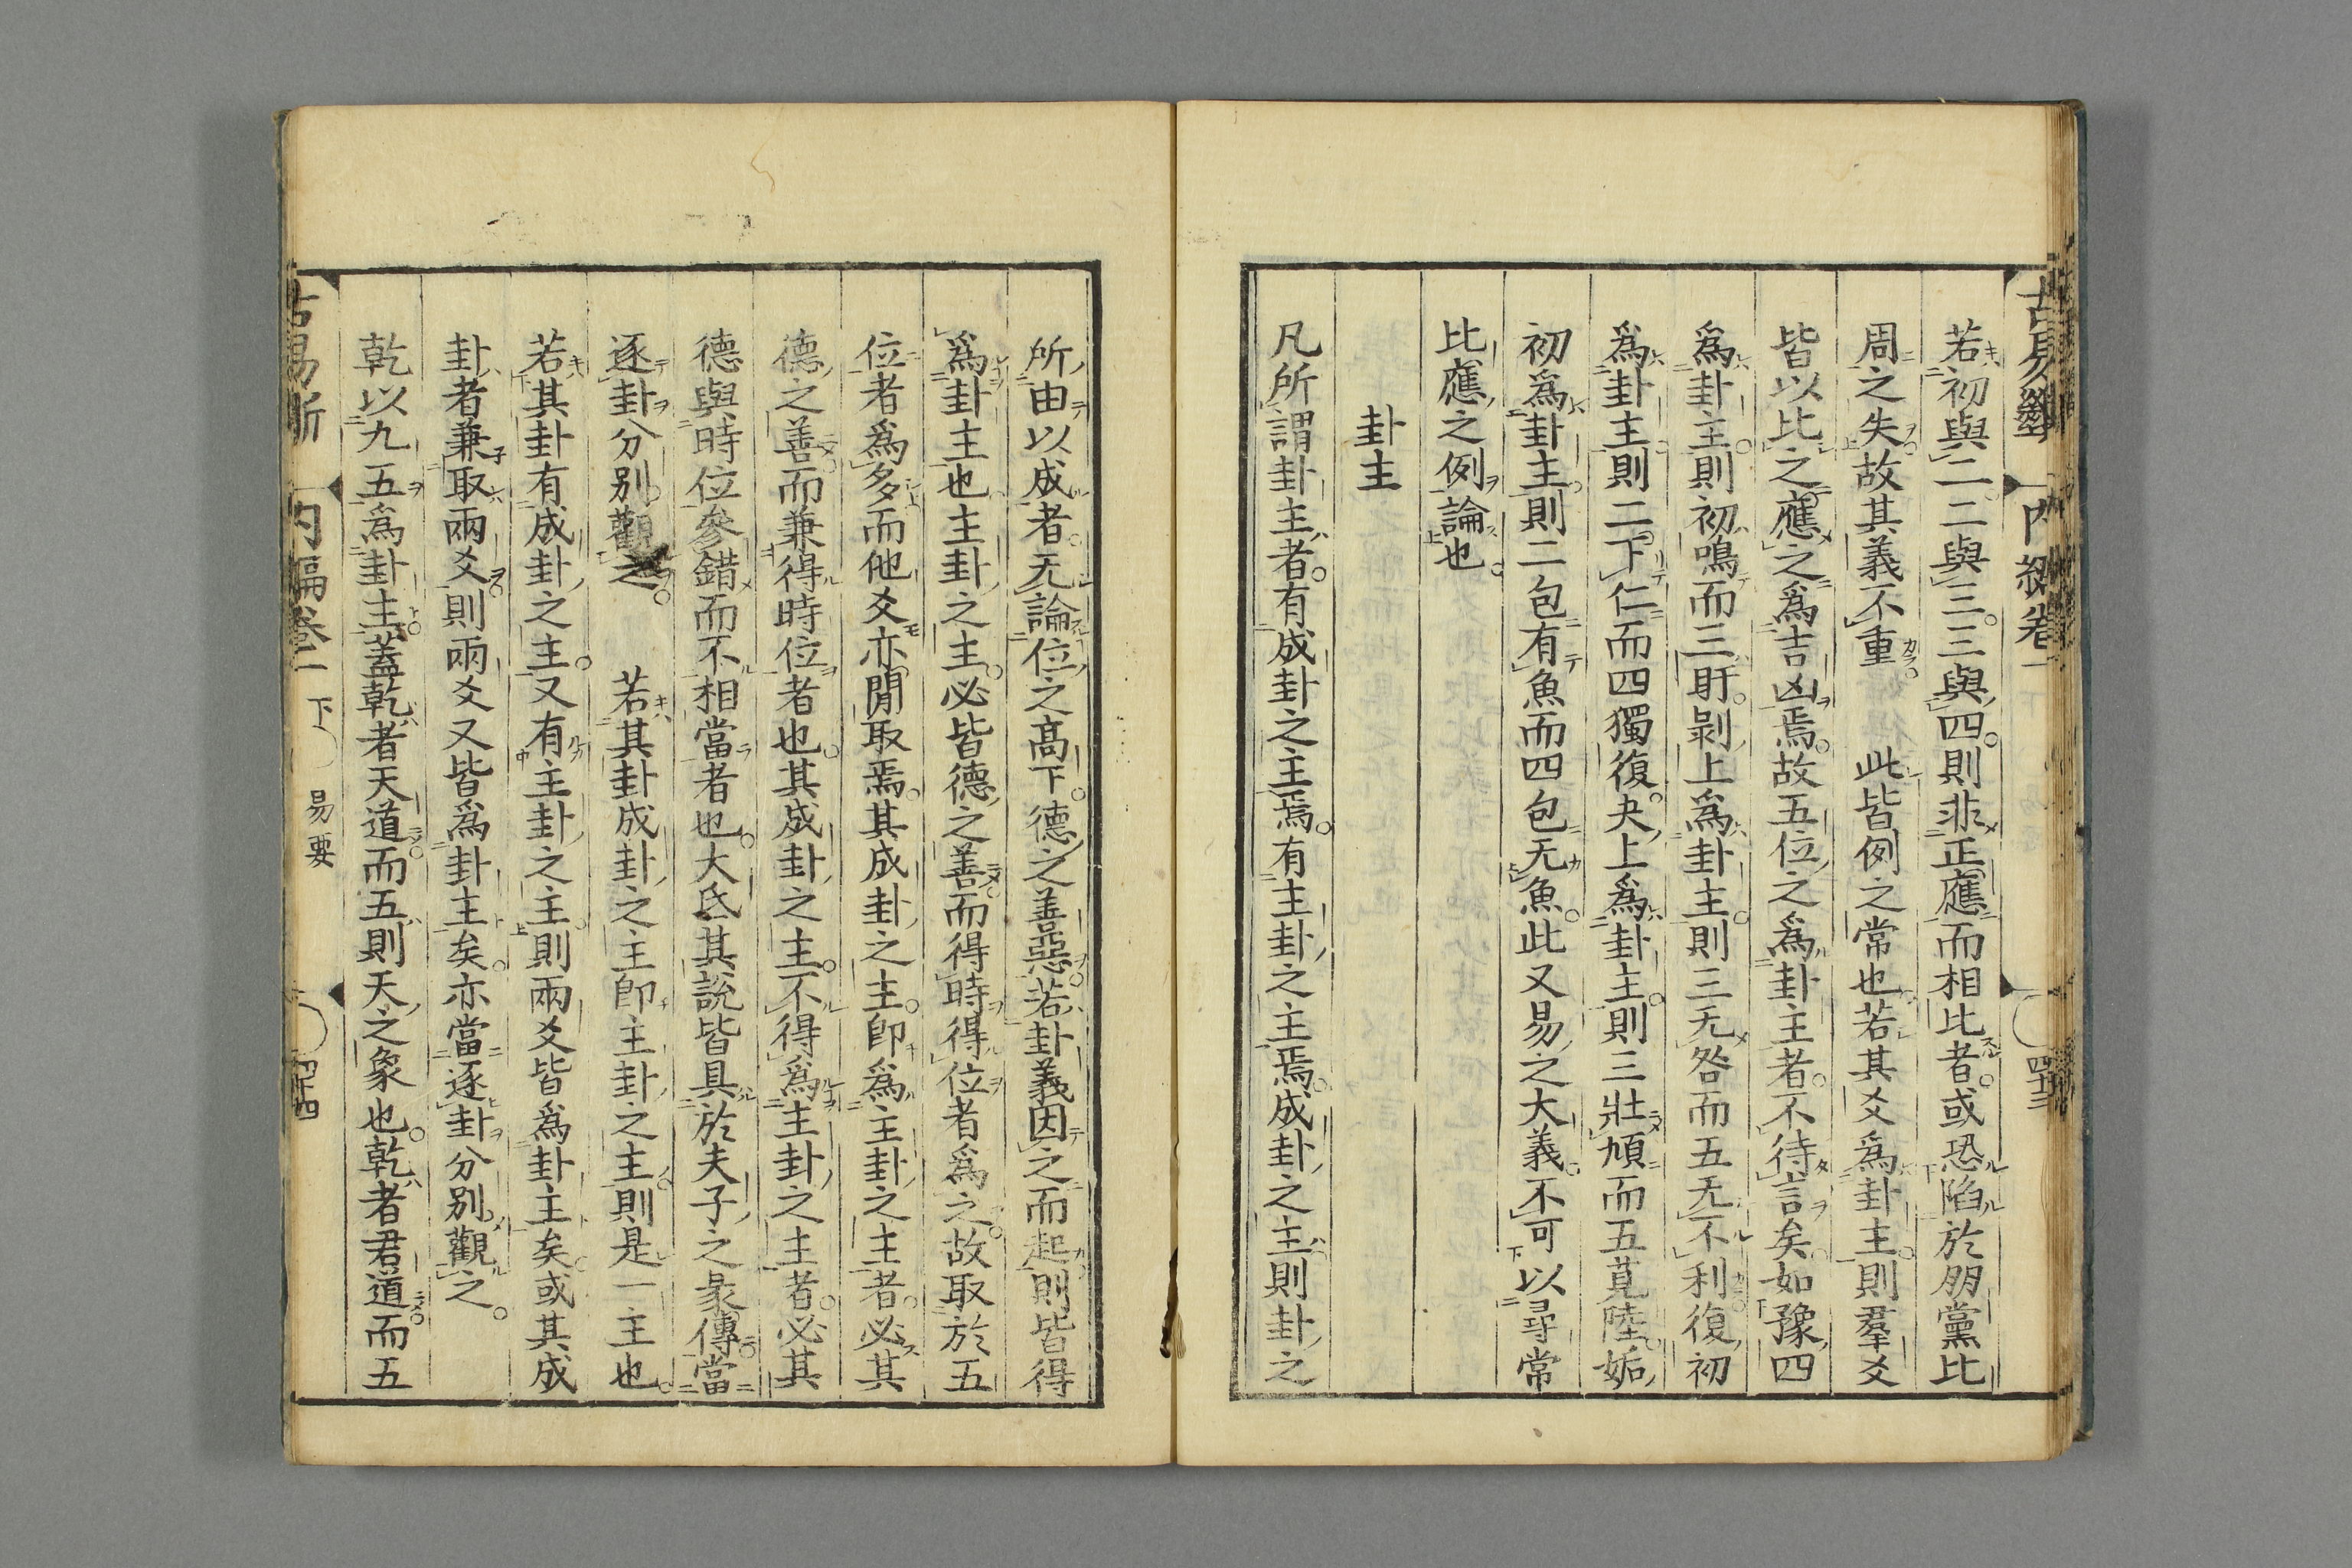 若初與二二與三三與四則非正應而相比者或恐陷於朋黨比
周之失故其義不重 此皆例之常也若其爻爲卦主則羣爻
皆以比之應之爲吉凶焉故五位之爲卦主者不待言矣如豫四
爲卦主則初鳴而三盱剝上爲卦主則三无咎而五无不利復初
爲卦主則二下仁而四獨復夬上爲卦主則三壯頄而五莧陸姤
初爲卦主則二包有魚而四包无魚此又易之大義不可以尋常
比應之例論也
卦主
凡所謂卦主者有成卦之主焉有主卦之主焉成卦之主則卦之
所由以成者无論位之高下德之善惡若卦義因之而起則皆得
爲卦主也主卦之主必皆德之善而得時得位者爲之故取於五
位者爲多而他爻亦閒取焉其成卦之主卽爲主卦之主者必其
德之善而兼得時位者也其成卦之主不得爲主卦之主者必其
德與時位參錯而不相當者也大氐其說皆具於夫子之彖傳當
逐卦分別觀之 若其卦成卦之主卽主卦之主則是一主也
若其卦有成卦之主又有主卦之主則兩爻皆爲卦主矣或其成
卦者兼取兩爻則兩爻又皆爲卦主矣亦當逐卦分別觀之
乾以九五爲卦主蓋乾者天道而五則天之象也乾者君道而五
古易斷 內編卷一 下 易要 四十四